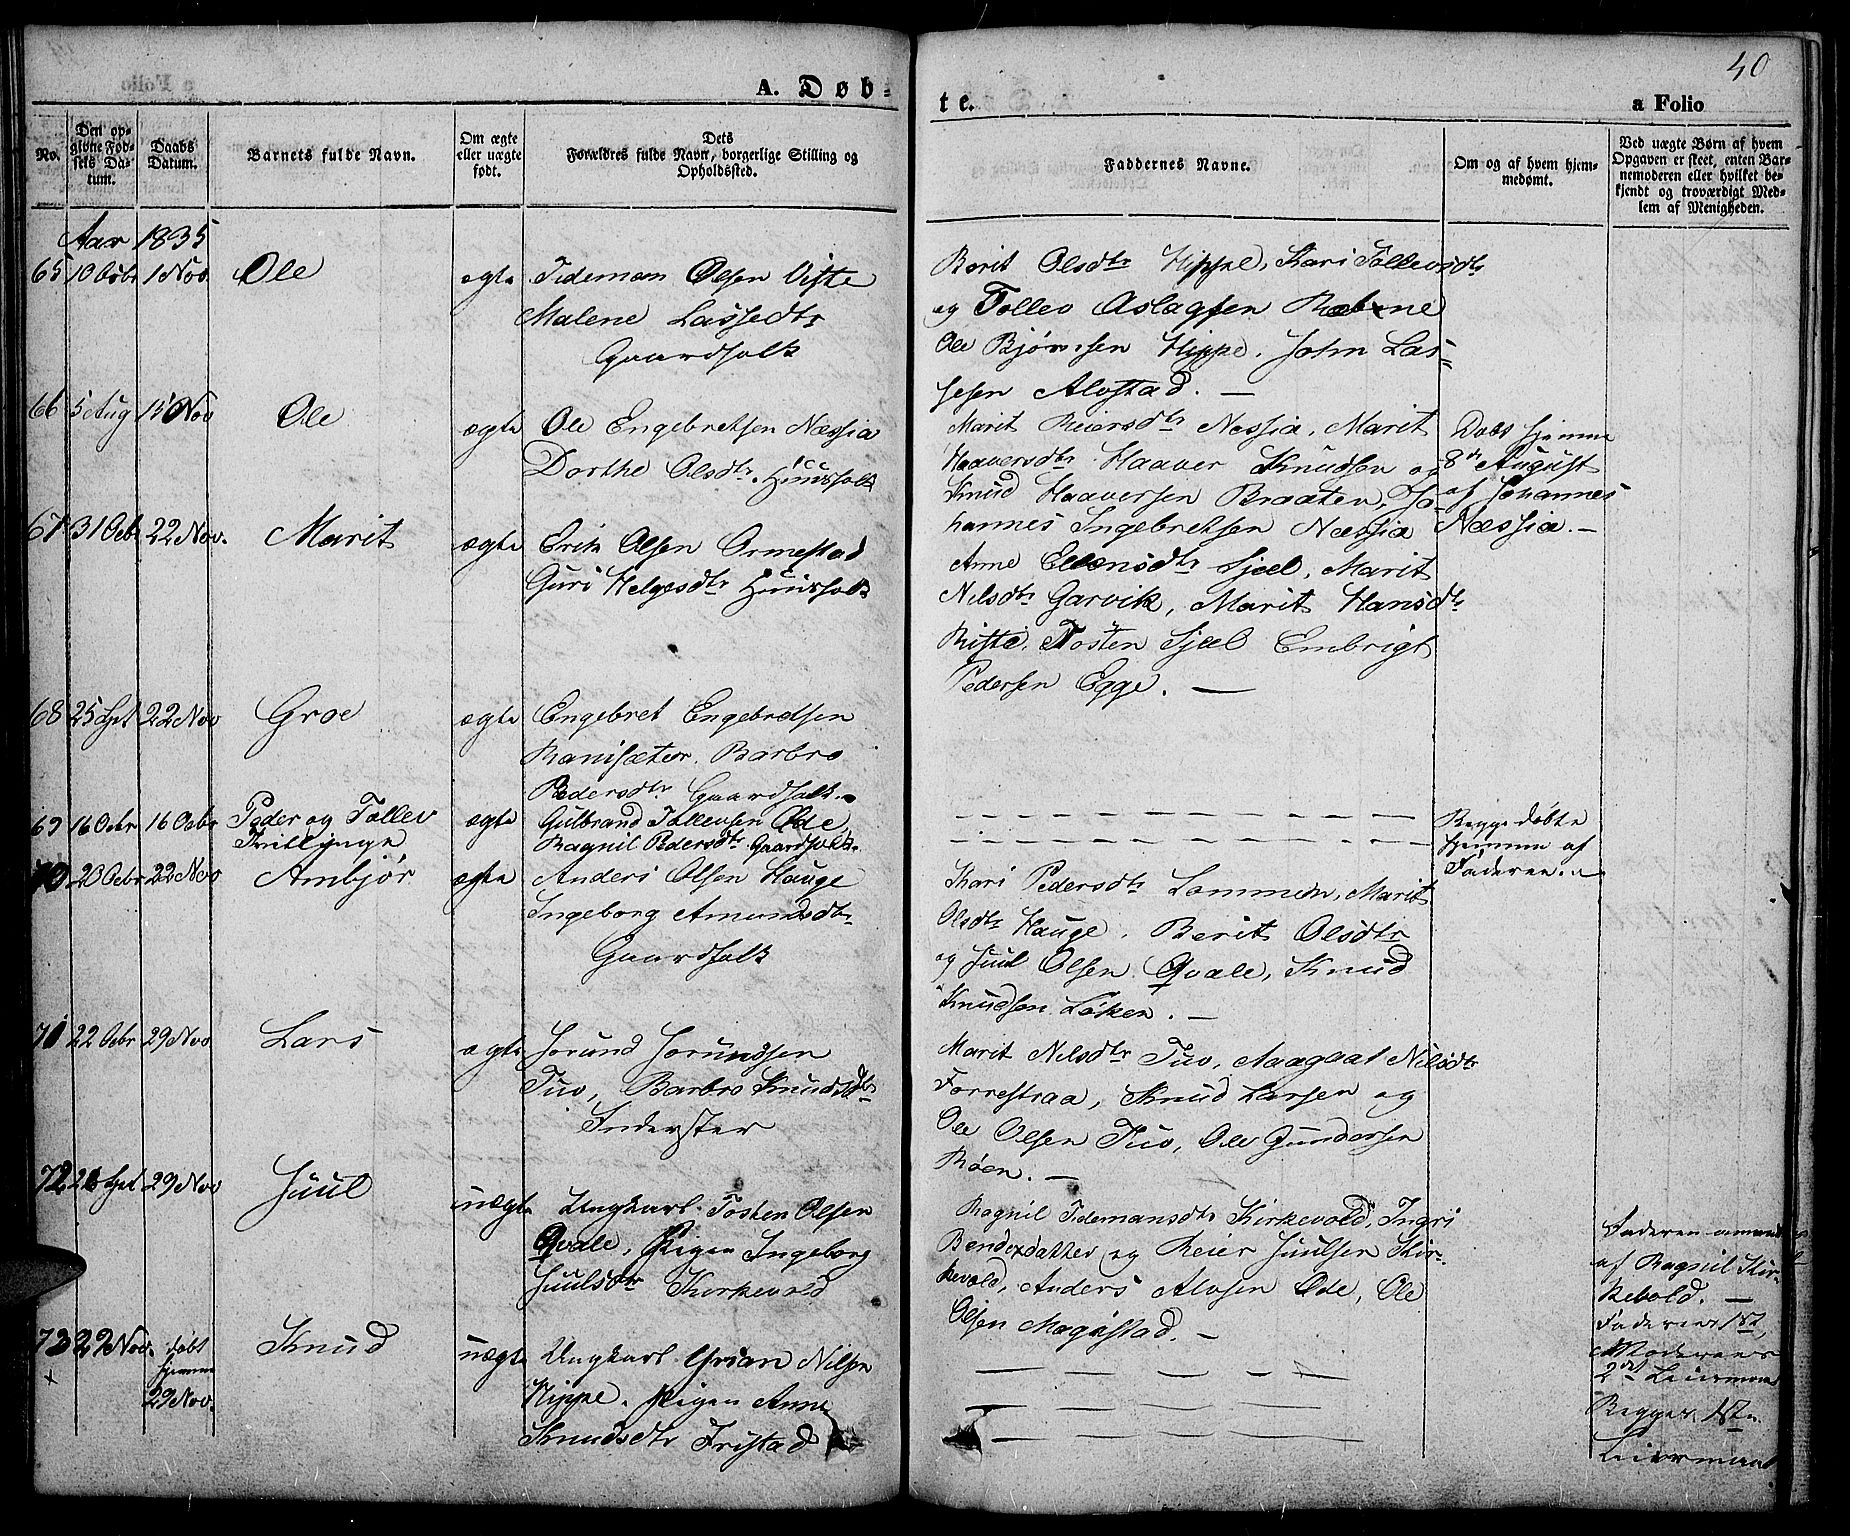 40
A. Døb-
te.
a Folio
No.
Den op-
givne Fød-
sels Da-
tum.
Daabs
Datum.
Barnets fulde Navn.
Om ægte
eller uægte
født.
Dets
Forældres fulde Navn, borgerlige Stilling og
Opholdssted.
Faddernes Navne.
Om og af hvem hjem-
medømt.
Ved uægte Børn af hvem
Opgaven er skeet, enten Bar-
nemoderen eller hvilket be-
kjendt og troværdigt Med-
lem af Menigheden.
Aar 1835
65 10 Octbr 1 Nov Ole ægte Tideman Olsen Viste
Malene Lassedtr
Gaardfolk
Berit Olsdtr Hippe, Kari Tollevsdtr
og Tollev Aslagsen Rebne
Ole Bjørnsen Hippe, John Las-
sesen Alvstad. —
66 5 Aug 15 Nov Ole ægte Ole Engebretsen Næssia
Dorthe Olsdtr. Huusfolk
Marit Reiersdtr Nessia, Marit
Haaversdtr Haaver Knudsen og
Knud Haaversen Braaten, Jo-
hannes Ingebretsen Næssia
Døbt hjemme
8de August
af Johannes
Næssia. —
67 31 Octb 22 Nov. Marit ægte Erik Olsen Ormestad
Guri Helgesdtr Huusfolk
Anne Ellensdtr Sjæl, Marit
Nilsdtr Garvik, Marit Hansdtr
Riste, Tosten Sjæl Embrigt
Pedersen Egge. —
68 25 Spt 22 Nov Groe ægte Engebret Engebretsen
Ranisæter, Barbro
Pedersdtr. Gaardfolk.
69 16 Octbr 16 Octbr Peder og Tollev
Tvillinge
ægte Gulbrand Tollevsen Øde,
Ragnil Pedersdtr Gaardfolk.
Begge døbte
hjemme af
Faderen.
70 20 Octbr 22 Nov Ambjør ægte Anders Olsen Hauge
Ingeborg Amundsdtr
Gaardfolk
Kari Pedersdtr Lommen, Marit
Olsdtr Hauge, Berit Olsdtr
og Juul Olsen Qvale, Knud
Knudsen Løken. —
71 22 Octbr 29 Nov Lars ægte Jorund Jorundsen
Tuv, Barbro Knudsdtr
Inderster
Marit Nilsdtr Tuv, Aagaat Nilsdtr
Forrestraa, Knud Larsen og
Ole Olsen Tuv, Ole Gundersen
Røen. —
72 Spt 29 Nov Juul uægte Ungkarl Tosten Olsen
Qvale, Pigen Ingeborg
Juulsdtr Kirkevold
Ragnil Tidemansdtr Kirkevold, Ingri
Bendexdatter og Reier Juulsen Kir-
kevold, Anders Alvsen Øde, Ole
Olsen Magistad. —
Faderen
af Ragnil Kir-
kevold. —
73 22 Nov. døbt
hjemme
29 Nov.
Knud uægte Ungkarl Nilsen
Hippe. Pigen Anne
Knudsdtr Fristad
Faderens 1ste,
Moderens
2det Leiermaal
Begges 1ste
Leiermaal